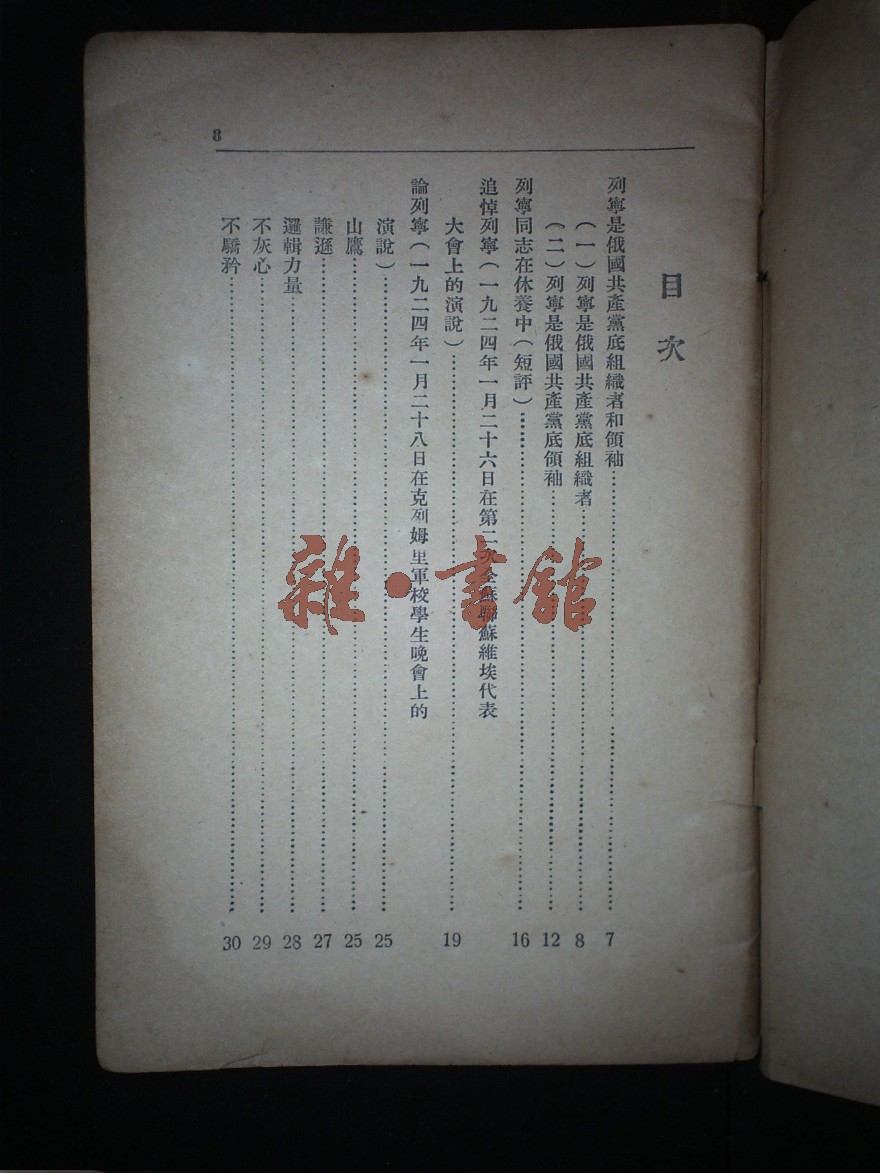 8
目次
列寧是俄國共產黨底組織者和領袖……7
(一)列寧是俄國共產黨底組織者……8
(二)列寧是俄國共產黨底領袖……12
列寧同志在休養中(短評)……16
追悼列寧(一九二四年一月二十六日在第二次全蘇聯蘇維埃代表
大會上的演說)……19
論列寧(一九二四年一月二十八日在克列姆里軍校學生晚會上的
演說)……25
山鷹……25
謙遜……27
邏輯力量……28
不灰心……29
不驕矜……30
雜·書館